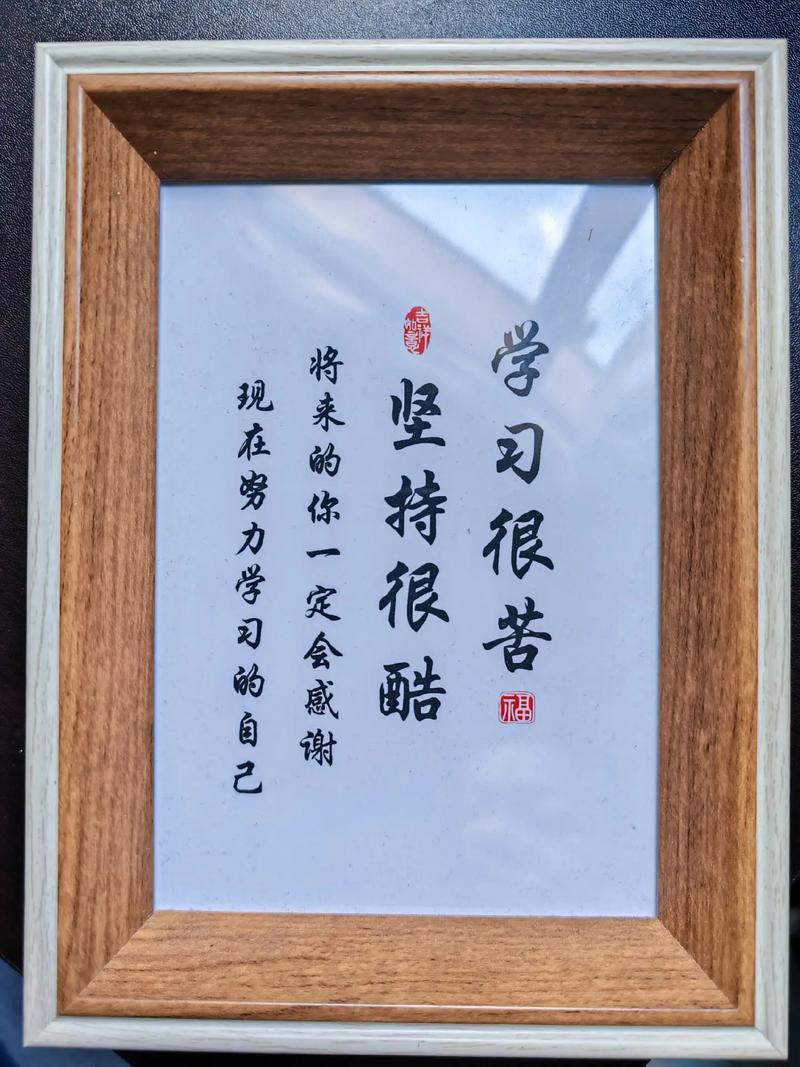 学习很苦
福
吉祥如意
坚持很酷
将来的你一定会感谢
现在努力学习的自己